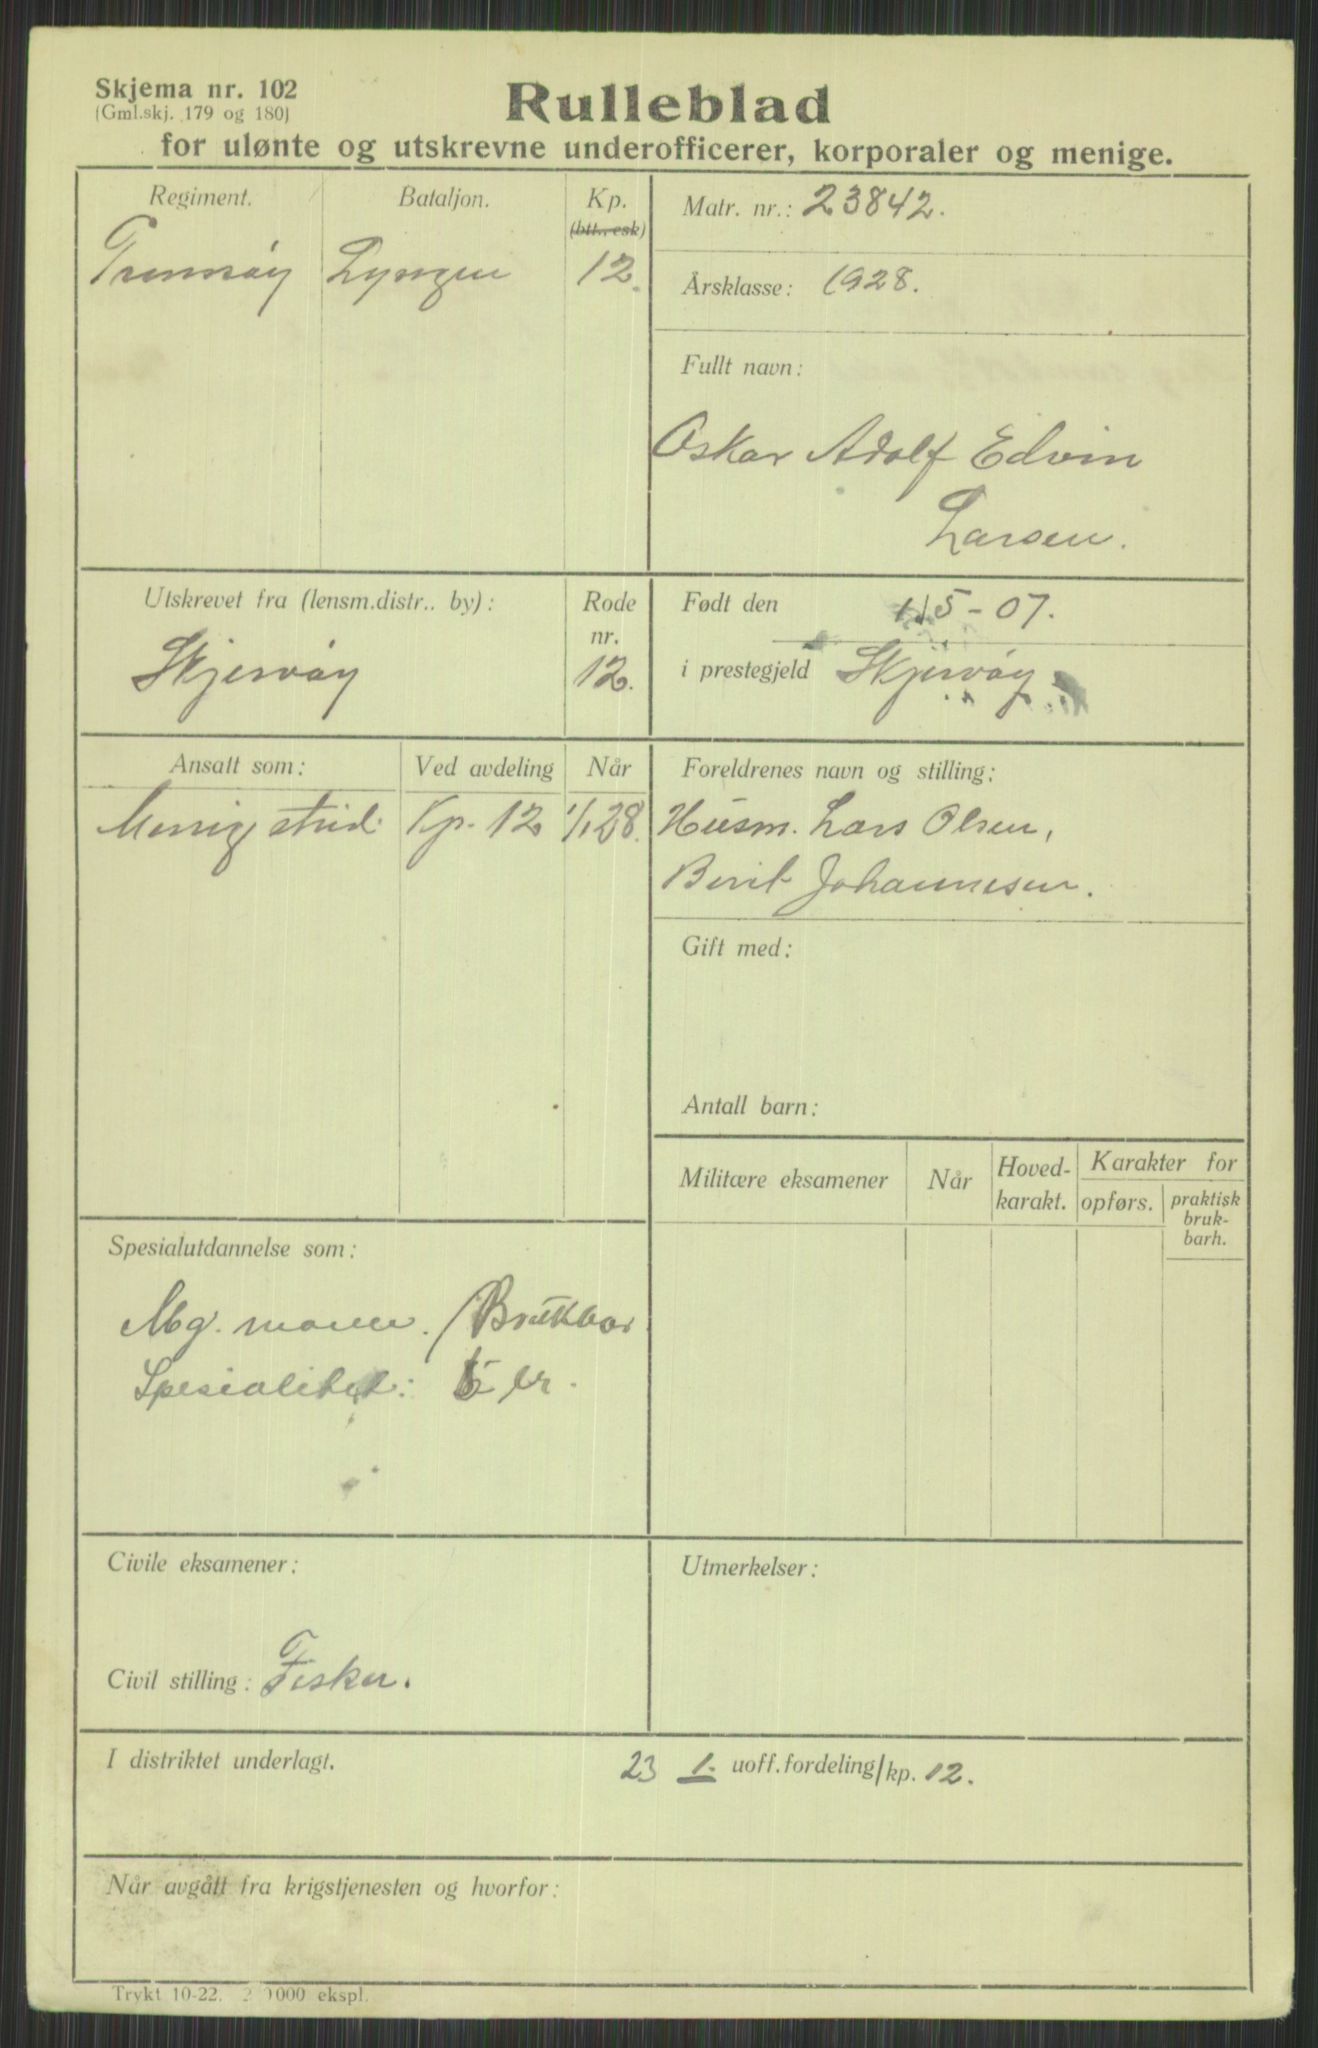 Skjema nr. 102
(Gml.skj. 179 og 180)
Rulleblad
for ulønte og utskrevne underofficerer, korporaler og menige.
Regiment.
Bataljon.
Kp.
(btt.resk)
Tromsøy
Lyngen
12.
Matr. nr.: 23842.
Årsklasse: 1928.
Fullt navn:
Oskar Adolf Edvin
Larsen.
Utskrevet fra (lensm.distr.. by):
Skjervøy
Rode
nr.
12.
Født den 1/5-07.
i prestegjeld Skjervøy
Ansatt som:
Ved avdeling
Når
Menig strid.
Kp. 12
1/1 28.
Foreldrenes navn og stilling:
Husm. Lars Olsen,
Berit Johannesen.
Gift med:
Antall barn:
Militære eksamener
Når
Hoved-
karakt.
Karakter for
opførs.
praktisk
bruk-
barh.
Spesialutdannelse som:
Mg. mann. / Brukbar
Spesialitet:
Civile eksamener:
Civil stilling: Fisker.
Utmerkelser:
I distriktet underlagt.
23 1. uoff.fordeling/kp. 12.
Når avgått fra krigstjenesten og hvorfor:
Trykt 10-22. 000 ekspl.